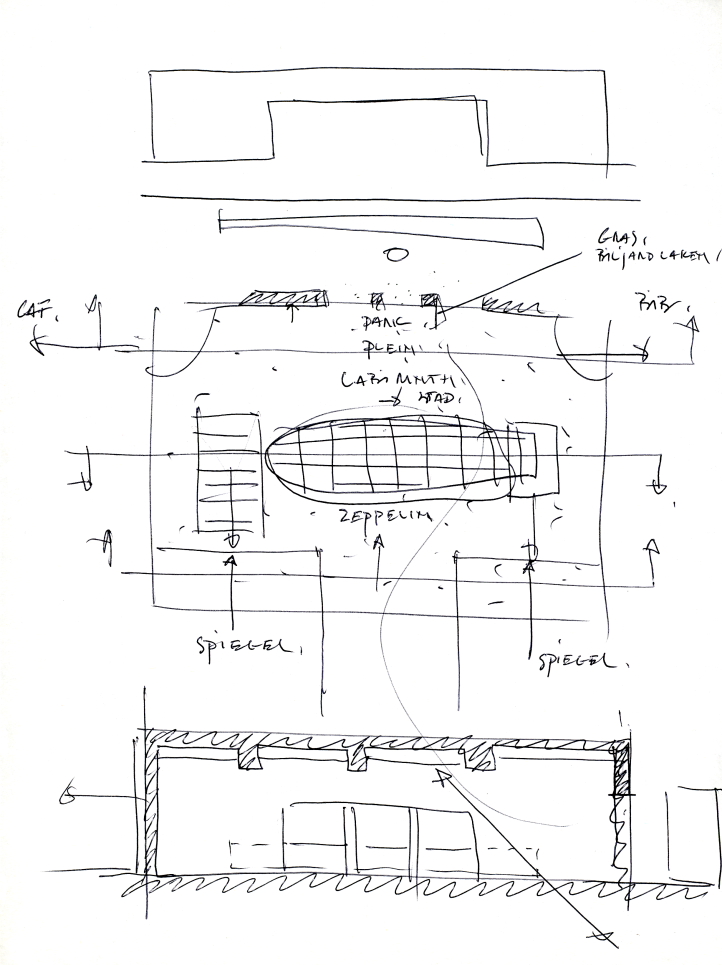 GRAS,
BILJARD LAKEN,
CAF.
BIB.
PARK.
PLEIN.
LABYRINTH.
STAD.
ZEPPELIN.
SPIEGEL.
SPIEGEL.